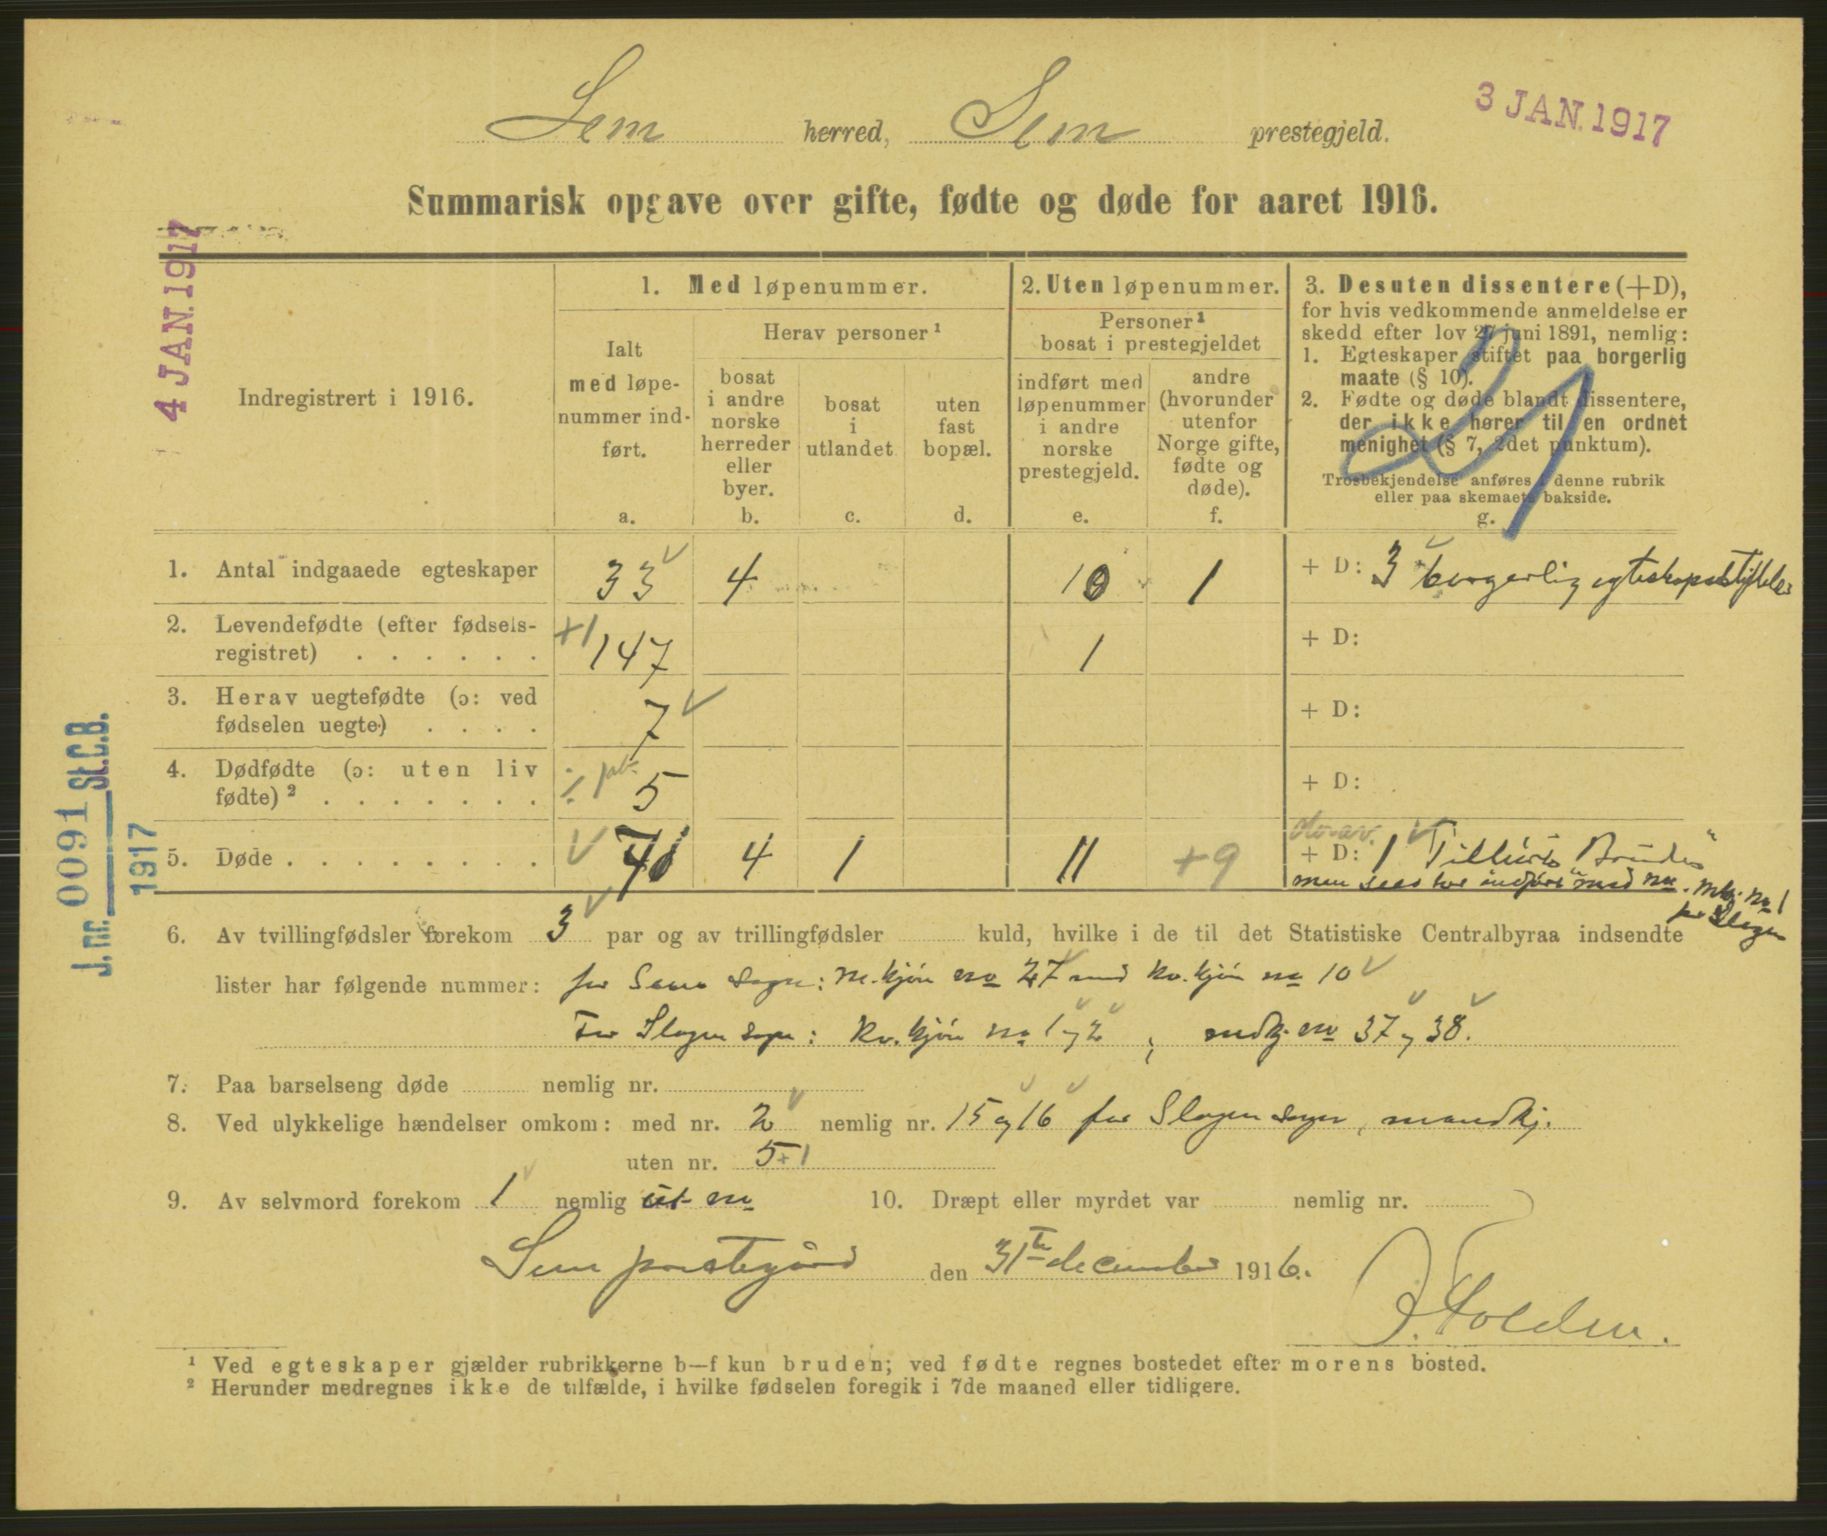 Sem herred, Sem prestegjeld.
3 JAN. 1917
Summarisk opgave over gifte, fødte og døde for aaret 1916.
4 JAN. 1917
J. nr. 0091 St.C.B.
1917
Indregistrert i 1916.
1. Med løpenummer.
Ialt
med løpe-
nummer ind-
ført.
a.
Herav personer ¹
bosat
i andre
norske
herreder
eller
byer.
b.
bosat
i
utlandet
c.
uten
fast
bopæl.
d.
2. Uten løpenummer.
Personer ¹
bosat i prestegjeldet
indført med
løpenummer
i andre
norske
prestegjeld.
e.
andre
(hvorunder
utenfor
Norge gifte,
fødte og
døde).
f.
3. Desuten dissentere (+D),
for hvis vedkommende anmeldelse er
skedd efter lov 27 juni 1891, nemlig:
1. Egteskaper stiftet paa borgerlig
maate (§ 10).
2. Fødte og døde blandt dissentere,
der ikke hører til en ordnet
menighet (§ 7, 2det punktum).
Trosbekjendelse anføres i denne rubrik
eller paa skemaets bakside.
g.
21
1. Antal indgaaede egteskaper 33 4 10 1 + D: 3 borgerlig egteskapsstiftelser
2. Levendefødte (efter fødsels-
registret) +1 147 1 + D:
3. Herav uegtefødte (ɔ: ved
fødselen uegte) 7 + D:
4. Dødfødte (ɔ: uten liv
fødte) ² 5 + D:
5. Døde 71 4 1 11 +9 + D: 1
no 1
for Slagen
6. Av tvillingfødsler forekom 3 par og av trillingfødsler kuld, hvilke i de til det Statistiske Centralbyraa indsendte
lister har følgende nummer: for Sem sogn: M.kjøn no 27 med kv.kjøn no 10
For Slagen sogn: Kv.kjøn no 1 og 2, mdkj. no 37 og 38.
7. Paa barselseng døde nemlig nr.
8. Ved ulykkelige hændelser omkom: med nr. 2 nemlig nr. 15 og 16 for Slagen sogn, mandkj.
uten nr. 5+1
9. Av selvmord forekom 1 nemlig ut no 10. Dræpt eller myrdet var nemlig nr.
Sem prestegård den 31te december 1916.
¹ Ved egteskaper gjælder rubrikkerne b—f kun bruden; ved fødte regnes bostedet efter morens bosted.
² Herunder medregnes ikke de tilfælde, i hvilke fødselen foregik i 7de maaned eller tidligere.